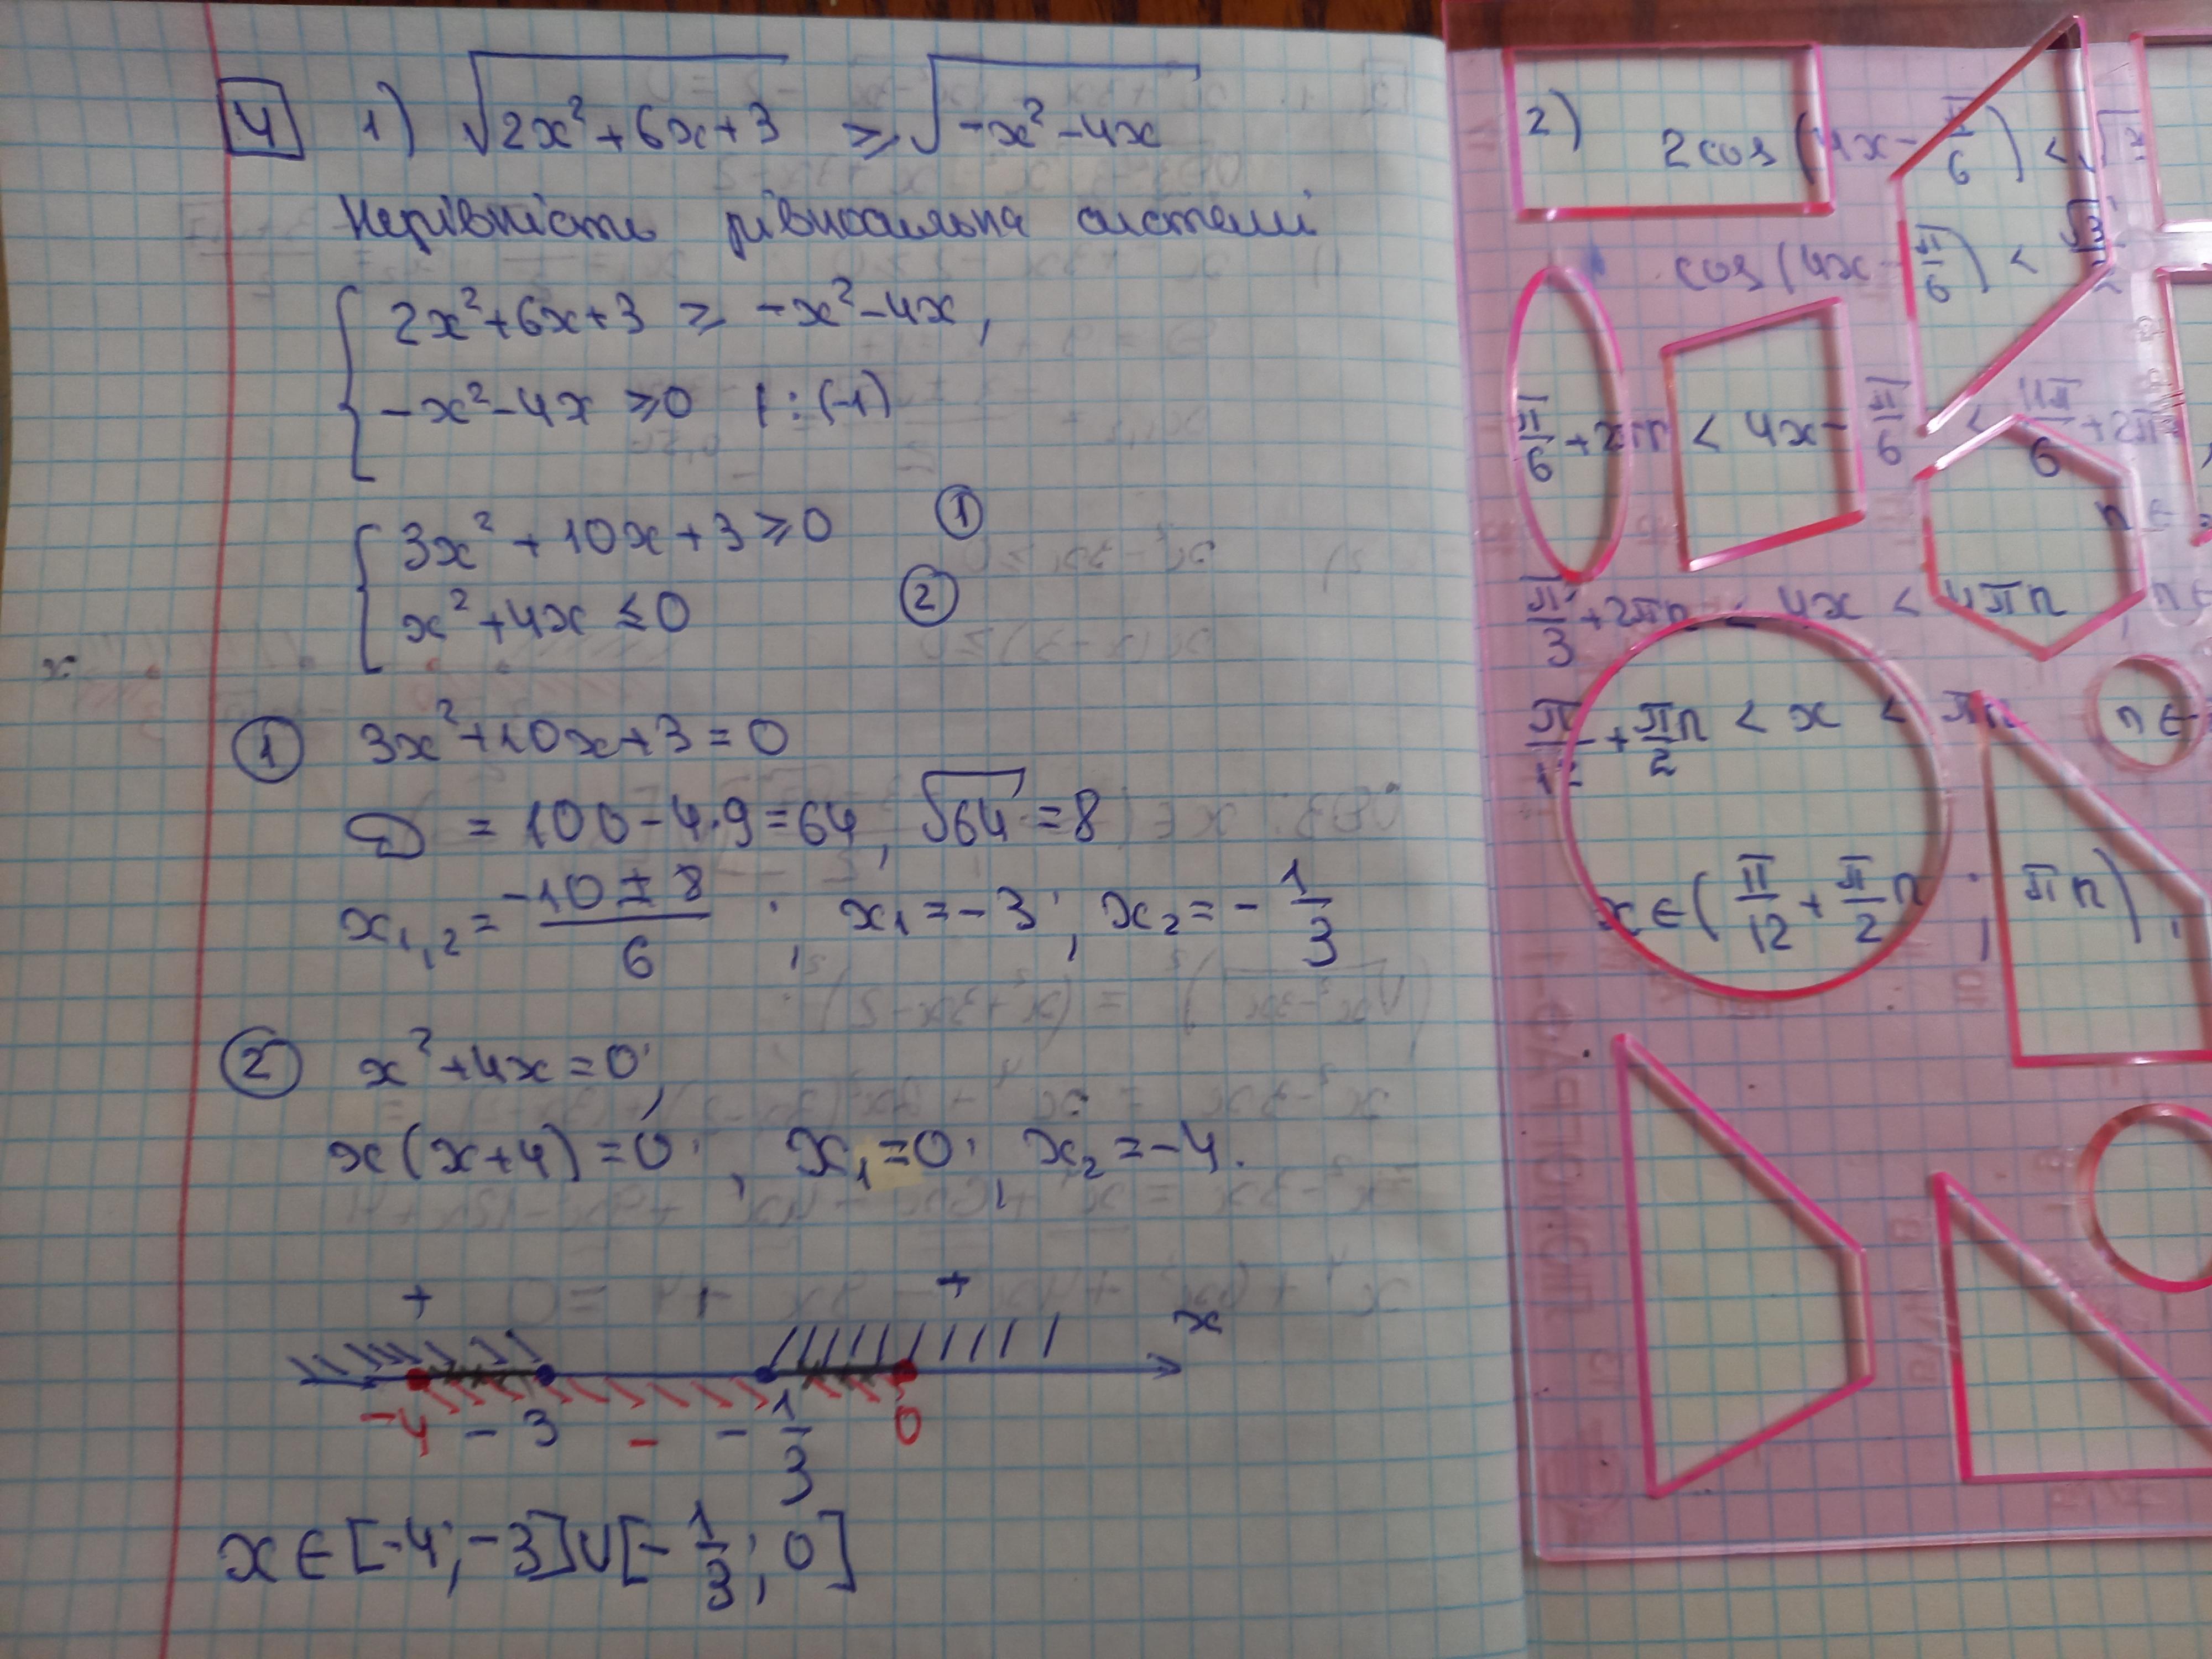 4 1) √(2x²+6x+3) ≥ √(-x²-4x)
Нерівність рівносильна системі
{ 2x²+6x+3 ≥ -x²-4x,
-x²-4x ≥ 0 | : (-1)
{ 3x²+10x+3 ≥ 0 ①
x²+4x ≤ 0 ②
① 3x²+10x+3=0
D = 100-4·9=64, √64 =8
x₁,₂ = (-10±8)/6 ; x₁=-3; x₂=-1/3
② x²+4x=0;
x(x+4)=0; x₁=0; x₂=-4.
+ +
x
-4 -3 - -1/3 0
x∈[-4;-3]∪[-1/3; 0]
2) 2cos(4x-π/6) <
cos(4x-π/6) < √3/2
π/6+2πn < 4x-π/6 < 11π/6+2π
π/3+2πn < 4x < 4πn
π/12+πn/2 < x < πn n∈
x∈(π/12+π/2n ; πn),